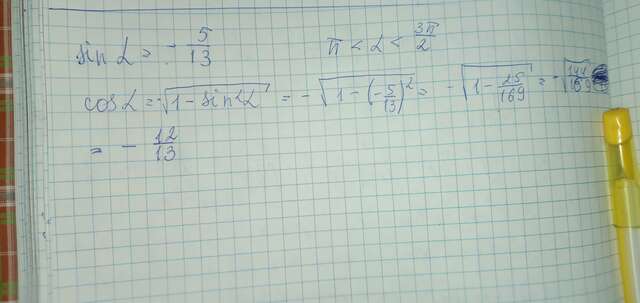 sin α = - 5/13    π < α < 3π/2
cos α = -√(1 - sin²α) = -√(1 - (-5/13)²) = -√(1 - 25/169) = -√(144/169)
= - 12/13